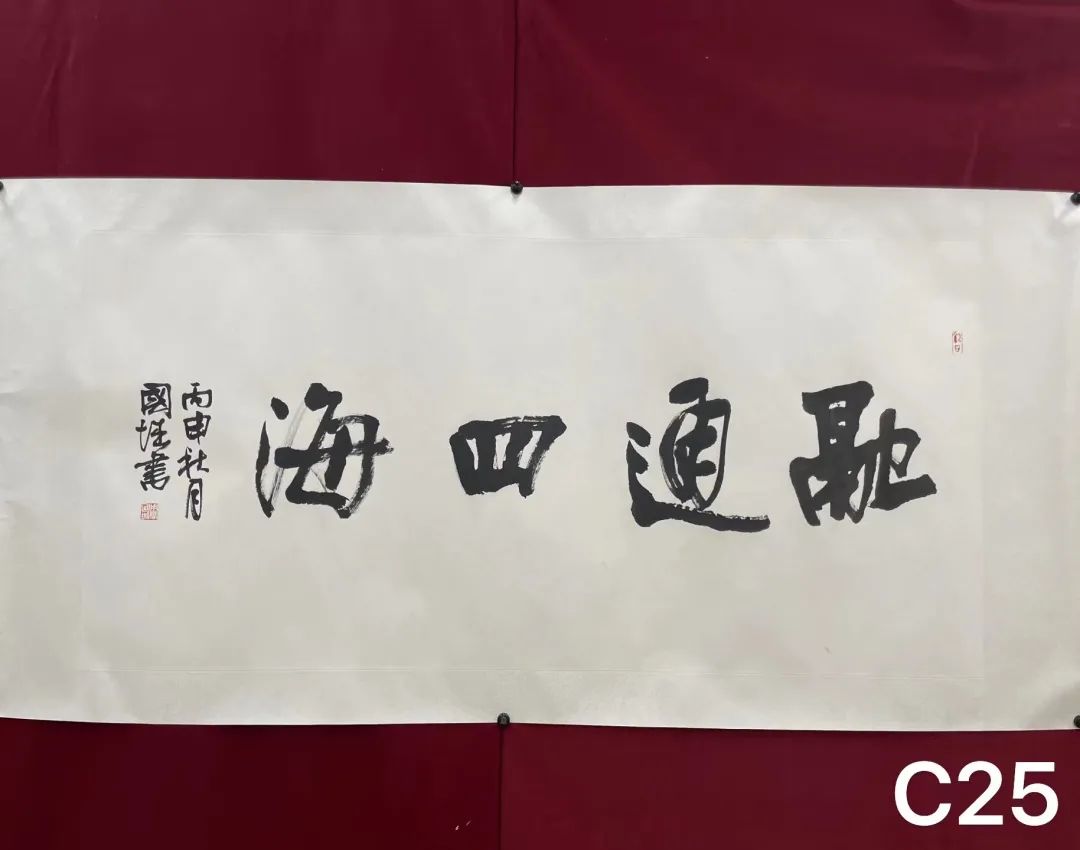 融通四海
丙申秋月
國 書
C25